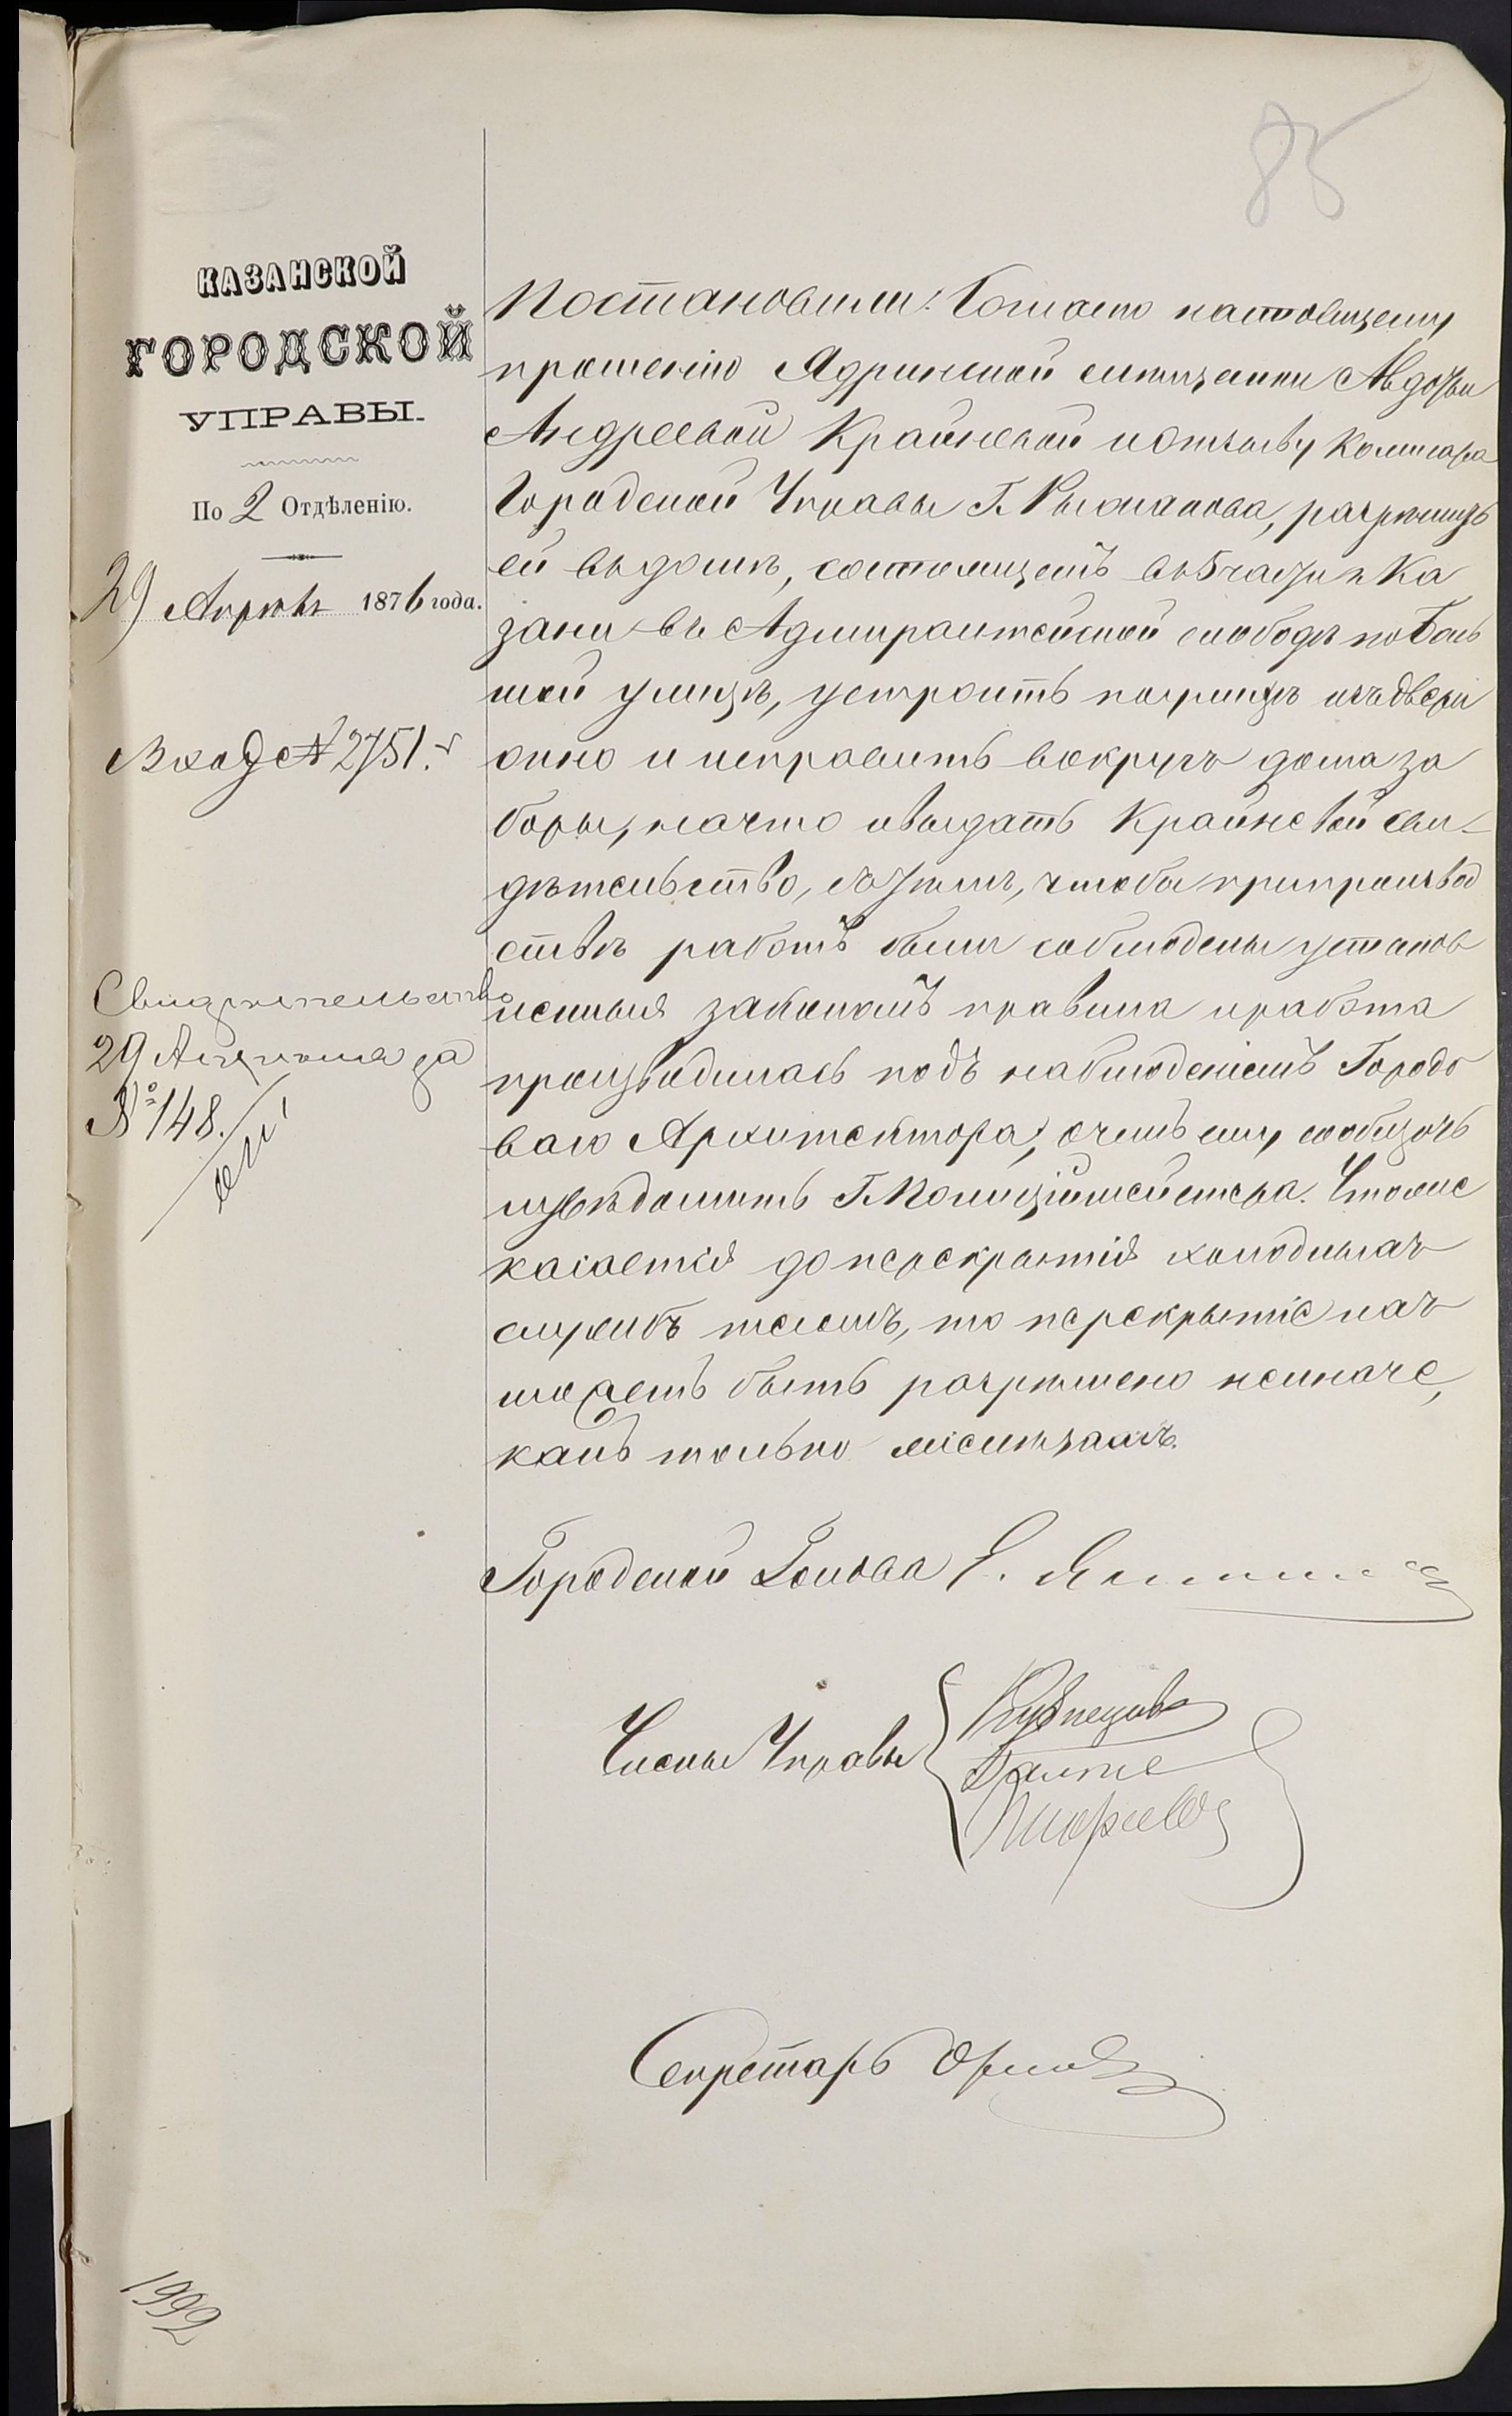 85
КАЗАНСКОЙ
ГОРОДСКОЙ
УПРАВЫ.
По 2 Отдѣленію.
29 Апрѣля 1876 года.
Вход № 2751.
Свидѣтельство
29 Апрѣля за
№ 148.
Постановили: Согласно настоящему
прошенію Ядринской мѣщанки Авдотьи
Андреевой Крайневой и отзыву Коммисара
Городской Управы Г. Рыжакова, разрѣшить
ей въ домѣ, состоящемъ въ 5 части г. Ка
зани въ Адмиралтейской слободѣ по Боль
шой улицѣ, устроить по улицѣ изъ двери
окно и исправить вокругъ дома за
боры, на что и выдать Крайневой сви-
дѣтельство, съ тѣмъ, чтобы при производ
ствѣ работъ были соблюдены установ
ленныя закономъ правила и работа
производилась подъ наблюденіемъ Городо
ваго Архитектора, о чемъ ему сообщить
и увѣдомить Г. Полиціймейстера. Что же
касается до перекрытія холодныхъ
службъ тесомъ, то перекрытіе ихъ
можетъ быть разрѣшено не иначе,
какъ только желѣзомъ.
Городской Голова Е. Янишевскій
Члены Управы
Кузнецовъ
Секретарь Орловъ
1992